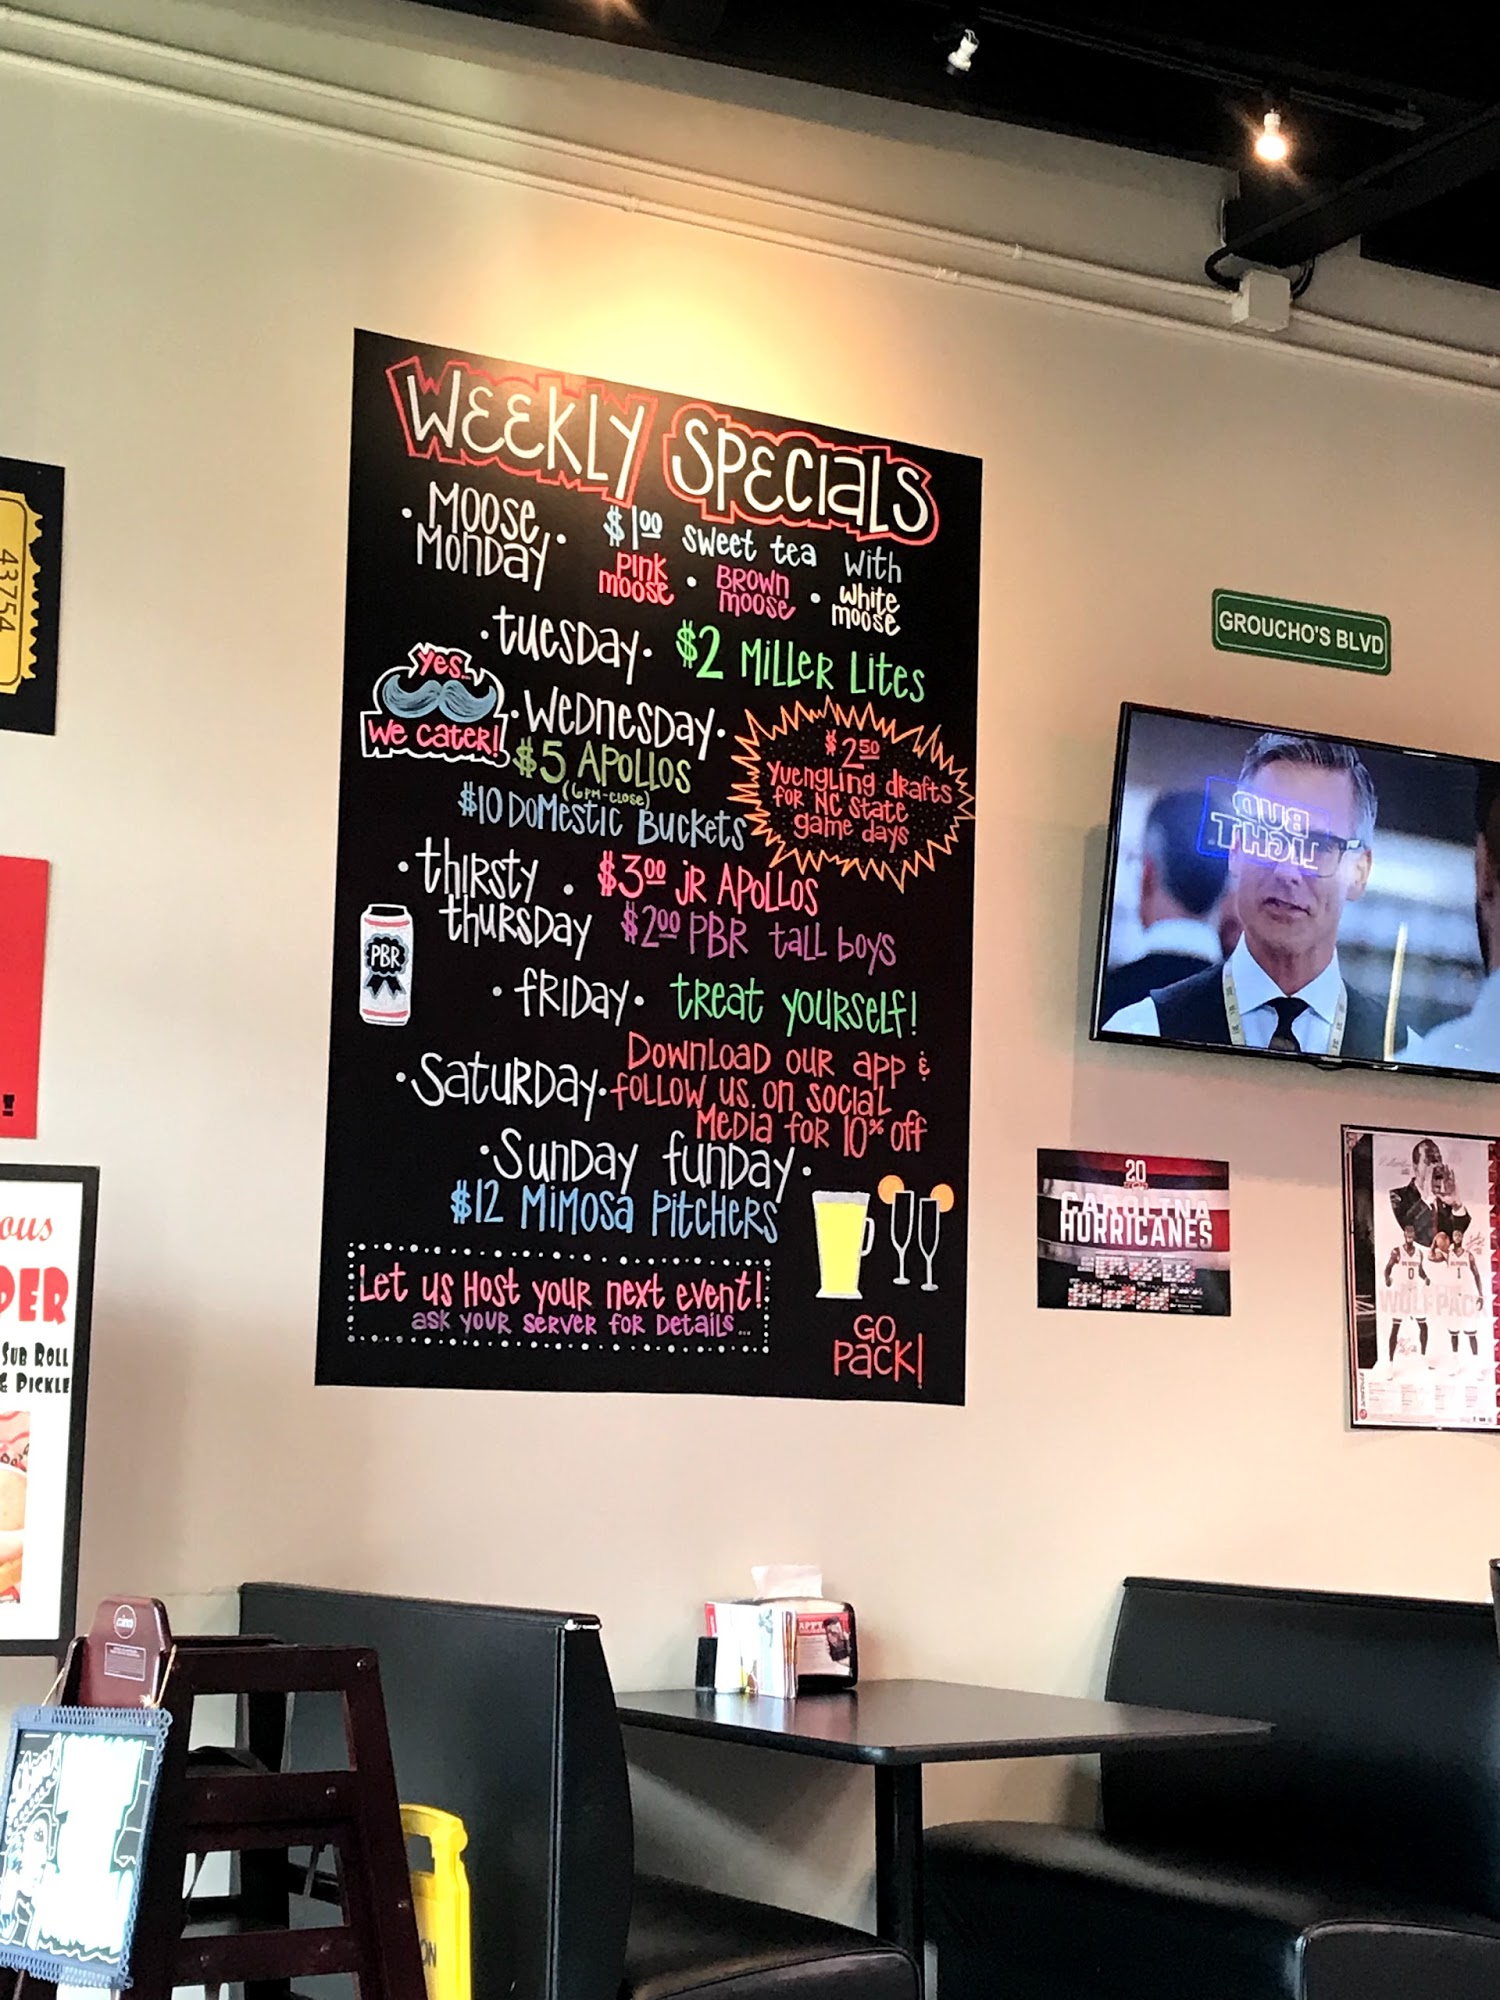 WEEKLY SPECIALS
• MOOSE MONDAY •
$1.00 sweet tea with
PINK MOOSE • BROWN MOOSE • WHITE MOOSE
• TUESDAY • $2 MILLER LITES
YES..
WE CATER!
• WEDNESDAY •
$5 APOLLOS
(6PM-CLOSE)
$10 DOMESTIC BUCKETS
$2.50
YUENGLING DRAFTS
FOR NC STATE
GAME DAYS
• THIRSTY THURSDAY •
$3.00 JR APOLLOS
$2.00 PBR TALL BOYS
PBR
• FRIDAY • TREAT YOURSELF!
• SATURDAY •
DOWNLOAD OUR APP &
FOLLOW US ON SOCIAL
MEDIA FOR 10% OFF
• SUNDAY FUNDAY •
$12 MIMOSA PITCHERS
LET US HOST YOUR NEXT EVENT!
ASK YOUR SERVER FOR DETAILS...
GO
PACK!
GROUCHO'S BLVD
BUD
LIGHT
20
CAROLINA
HURRICANES
WOLFPACK
0
1
43754
!
OUS
PER
SUB ROLL
& PICKLE